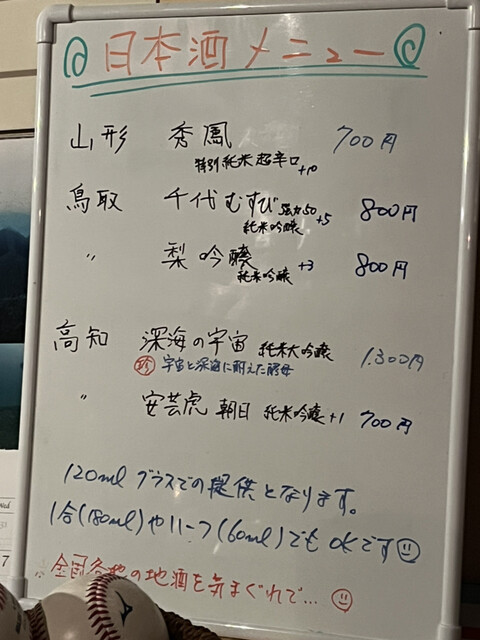 日本酒メニュー
山形 秀鳳 700円
特別純米超辛口+10
鳥取 千代むすび 強力50 +5 800円
純米吟醸
〃 梨吟醸 +3 800円
純米吟醸
高知 深海の宇宙 純米大吟醸 1,300円
珍 宇宙と深海に耐えた酵母
〃 安芸虎 朝日 純米吟醸+1 700円
120mlグラスでの提供となります。
1合(180ml)やハーフ(60ml)でもOKです
全国各地の地酒を気まぐれで…
7